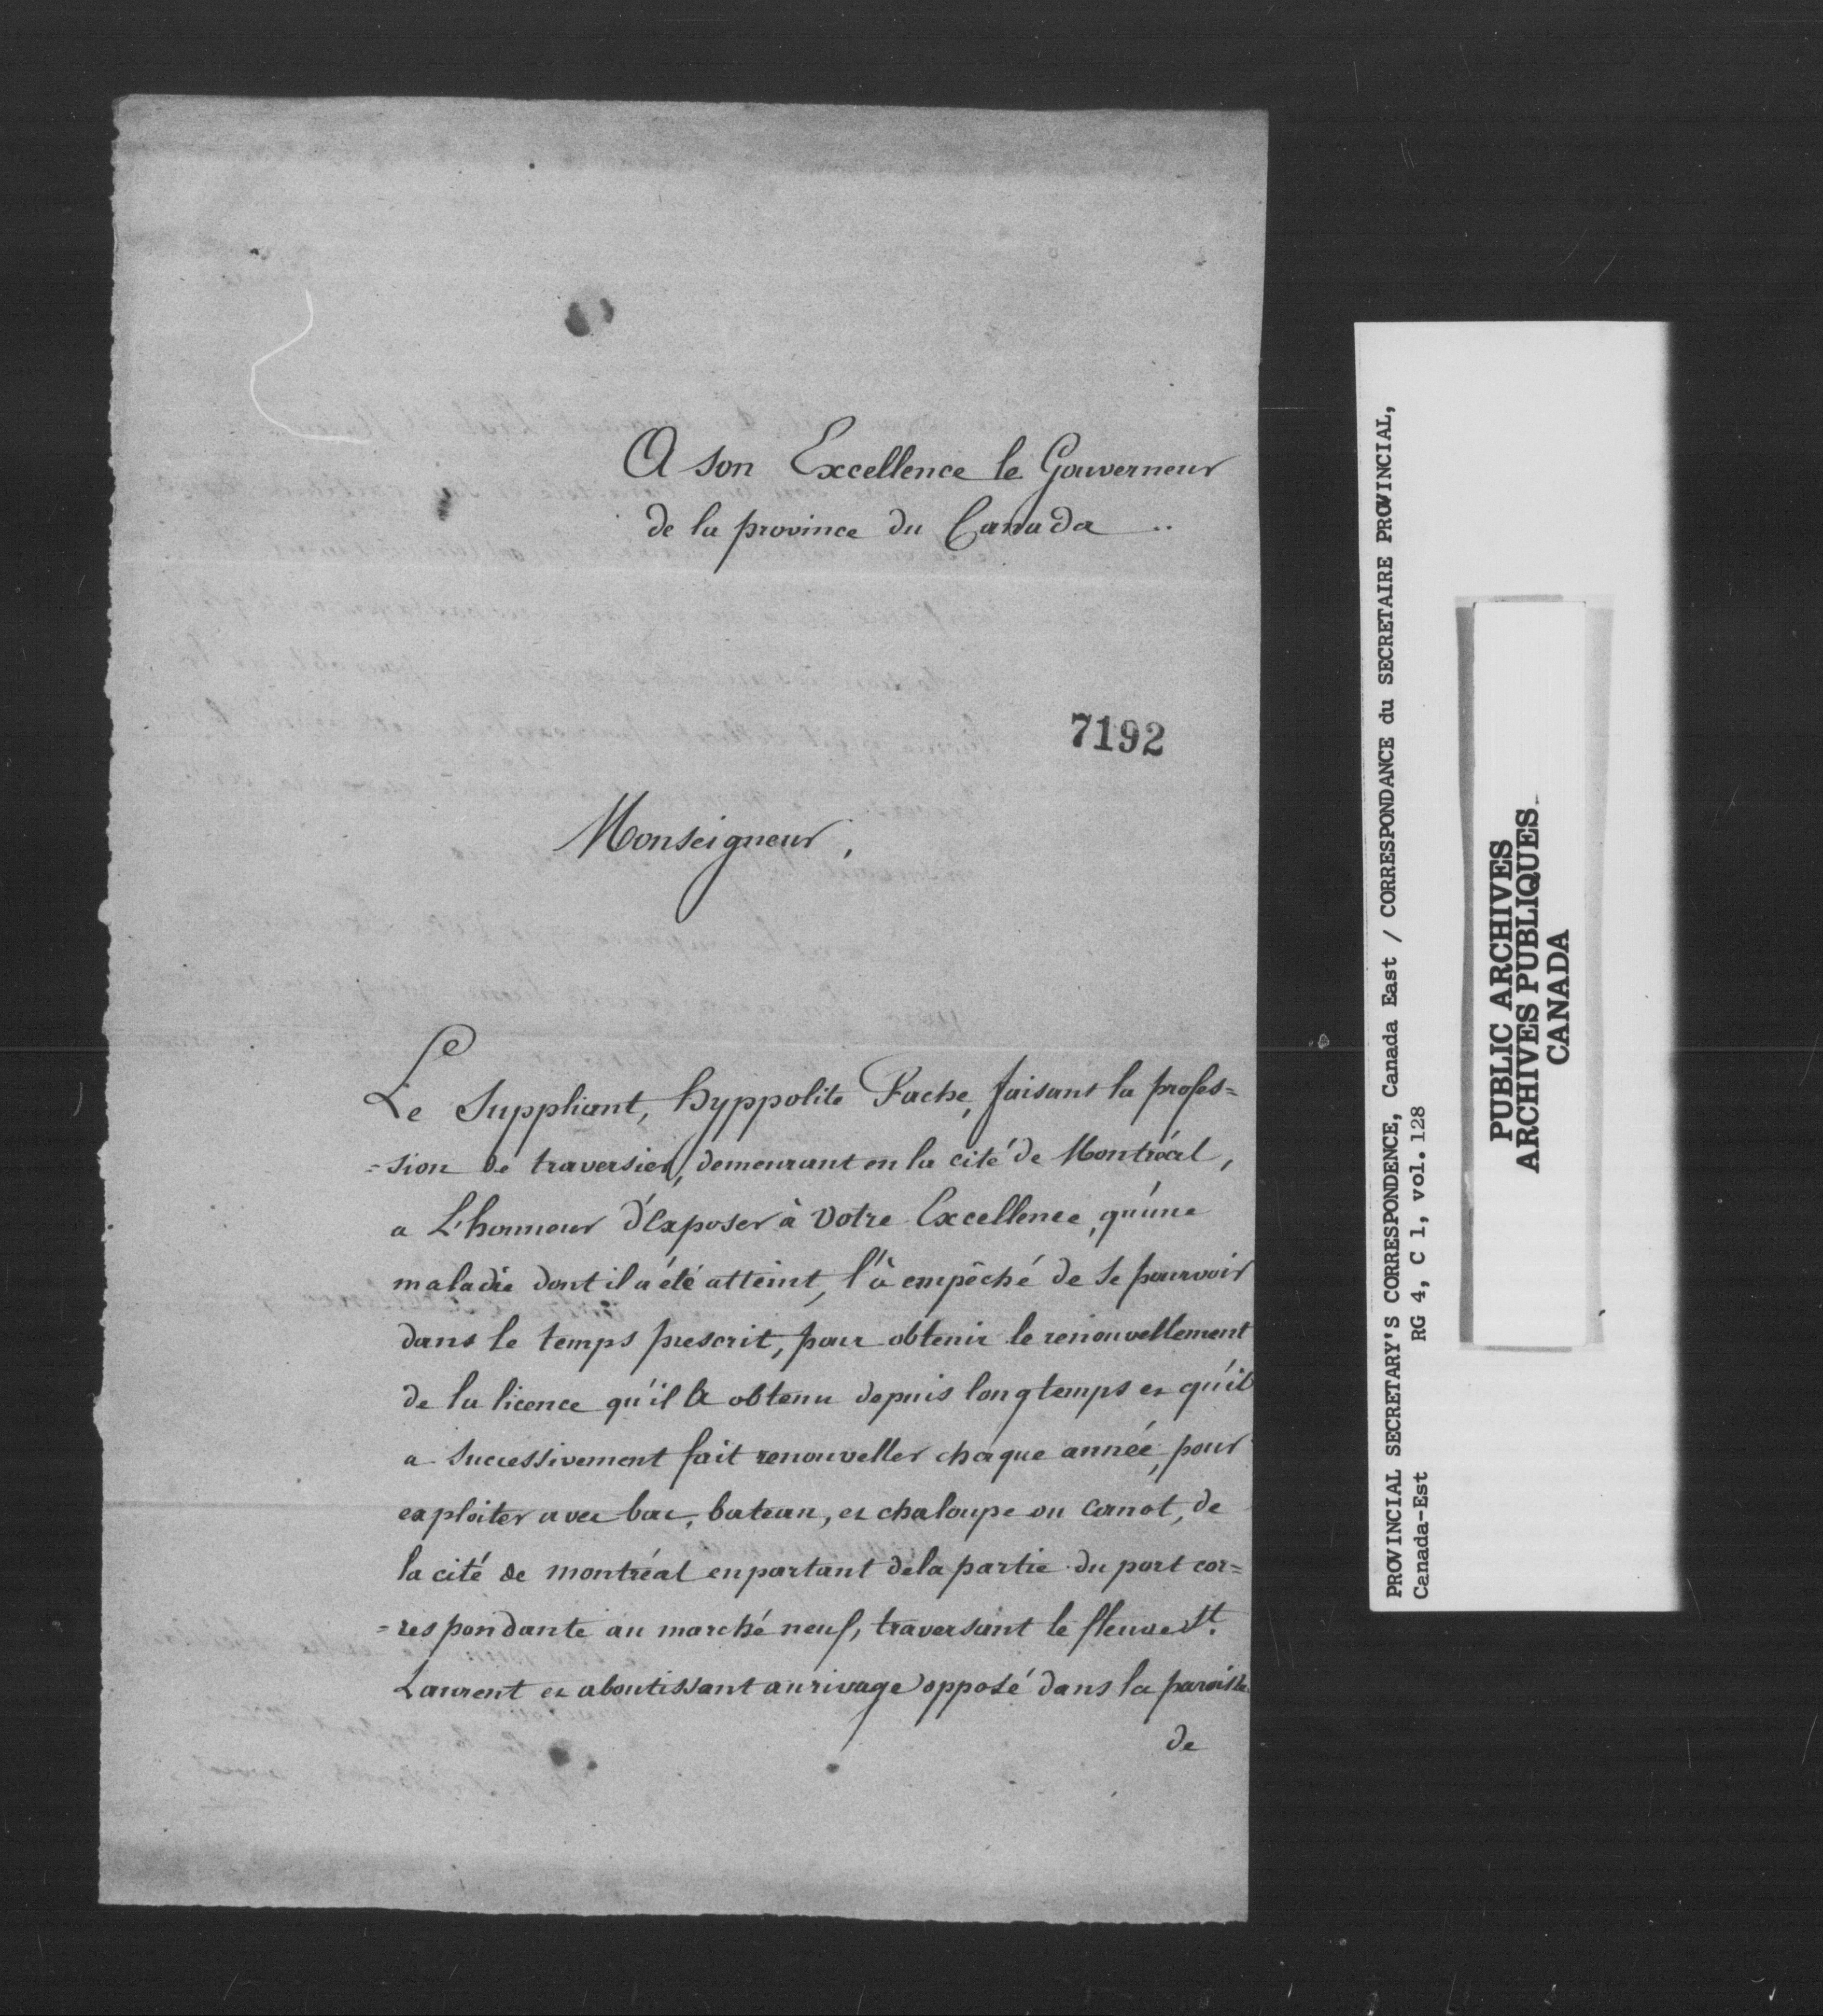 A son Excellence le Gouverneur
de la province du Canada ..
7192
Monseigneur,
Le Suppliant, hyppolite Fache, faisant la profes=
=sion de traversier, demeurant en la cité de Montréal,
a L'honneur d'Exposer à Votre Excellence, qu'une
maladie dont il a été atteint, l'à empêché de se pourvoir
dans le temps prescrit, pour obtenir le renouvellement
de la licence qu'il a obtenu depuis longtemps et qu'il
a successivement fait renouveller chaque année, pour
exploiter avec bac, bateau, et chaloupe ou canot, de
la cité de montréal en partant de la partie du port cor=
=respondante au marché neuf, traversant le fleuve St.
Laurent et aboutissant au rivage opposé dans la paroisse
de
PROVINCIAL SECRETARY'S CORRESPONDENCE, Canada East / CORRESPONDANCE du SECRETAIRE PROVINCIAL,
Canada-Est RG 4, C 1, vol. 128
PUBLIC ARCHIVES
ARCHIVES PUBLIQUES
CANADA